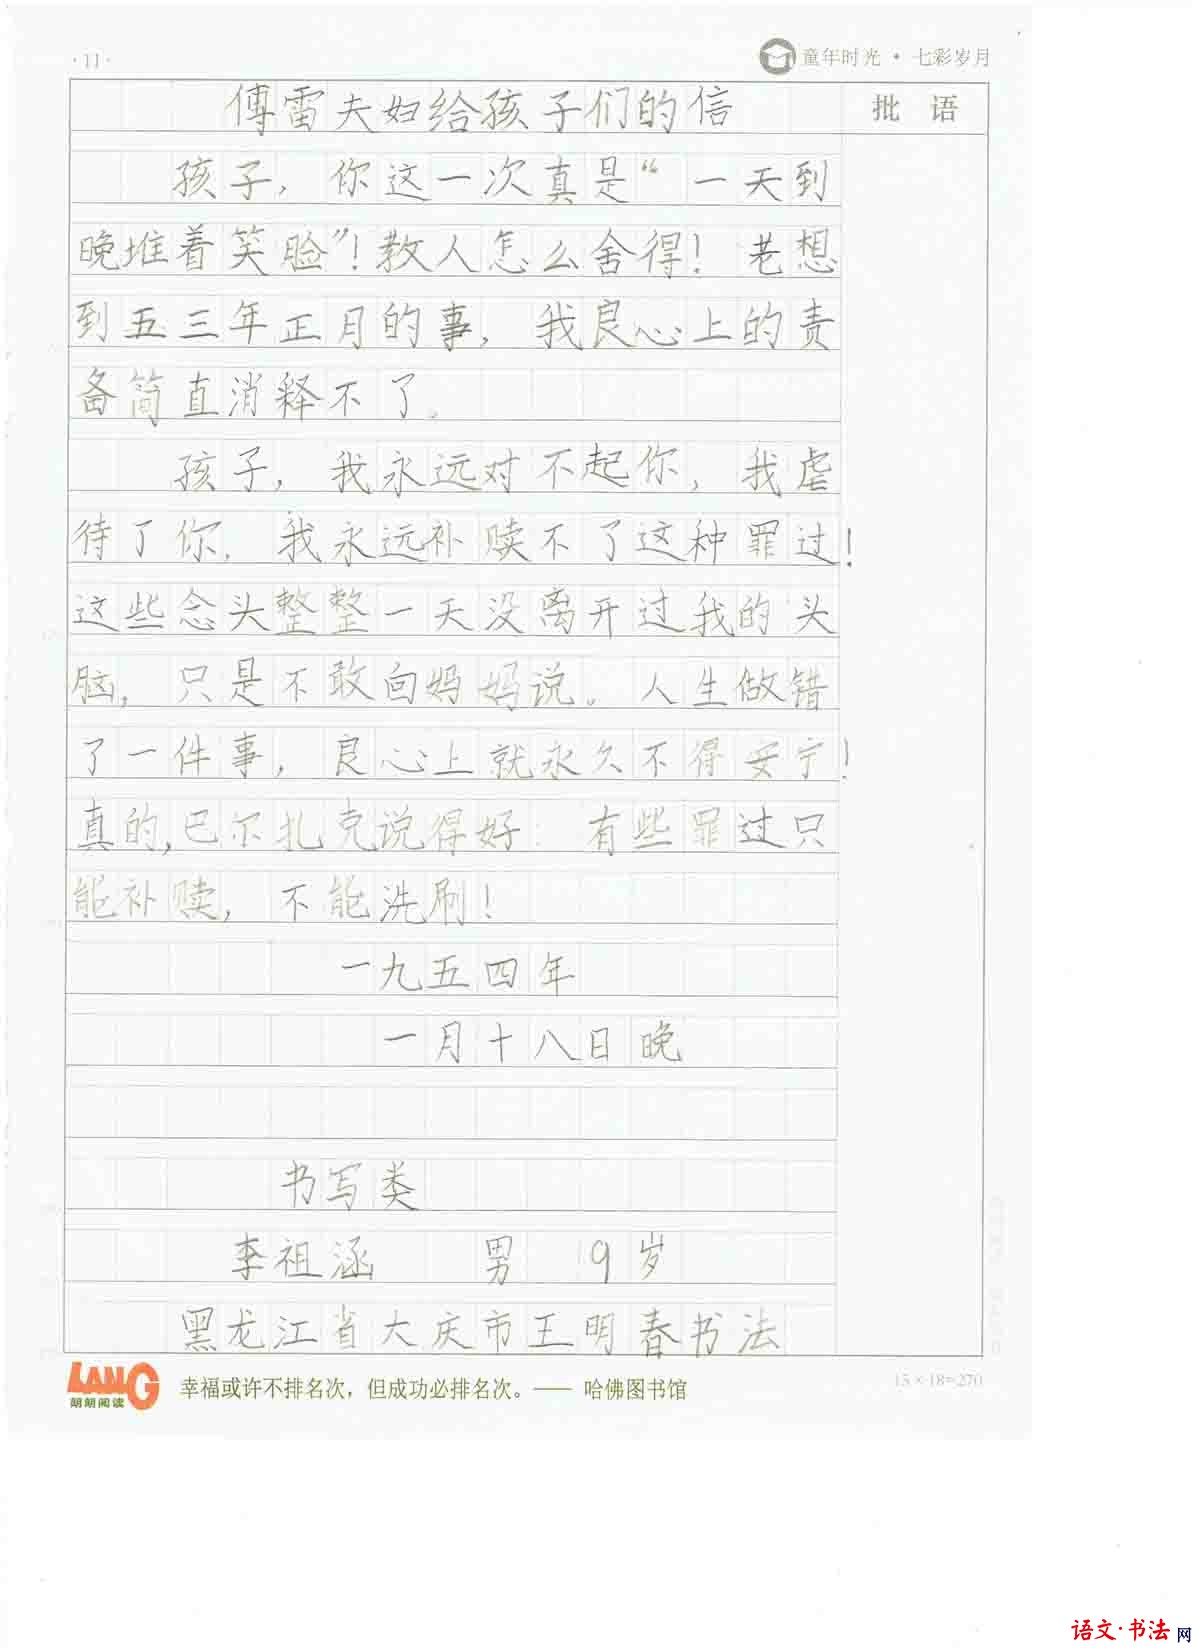 ·11·
童年时光·七彩岁月
傅雷夫妇给孩子们的信
批 语
孩子，你这一次真是“一天到
晚堆着笑脸”！教人怎么舍得！老想
到五三年正月的事，我良心上的责
备简直消释不了。
孩子，我永远对不起你，我虐
待了你，我永远补赎不了这种罪过！
这些念头整整一天没离开过我的头
脑，只是不敢向妈妈说。人生做错
了一件事，良心上就永久不得安宁！
真的，巴尔扎克说得好：有些罪过只
能补赎，不能洗刷！
一九五四年
一月十八日晚
书写类
李祖涵 男 9岁
黑龙江省大庆市王明春书法
LANG
朗朗阅读
幸福或许不排名次，但成功必排名次。—— 哈佛图书馆
15×18=270
语文·书法网